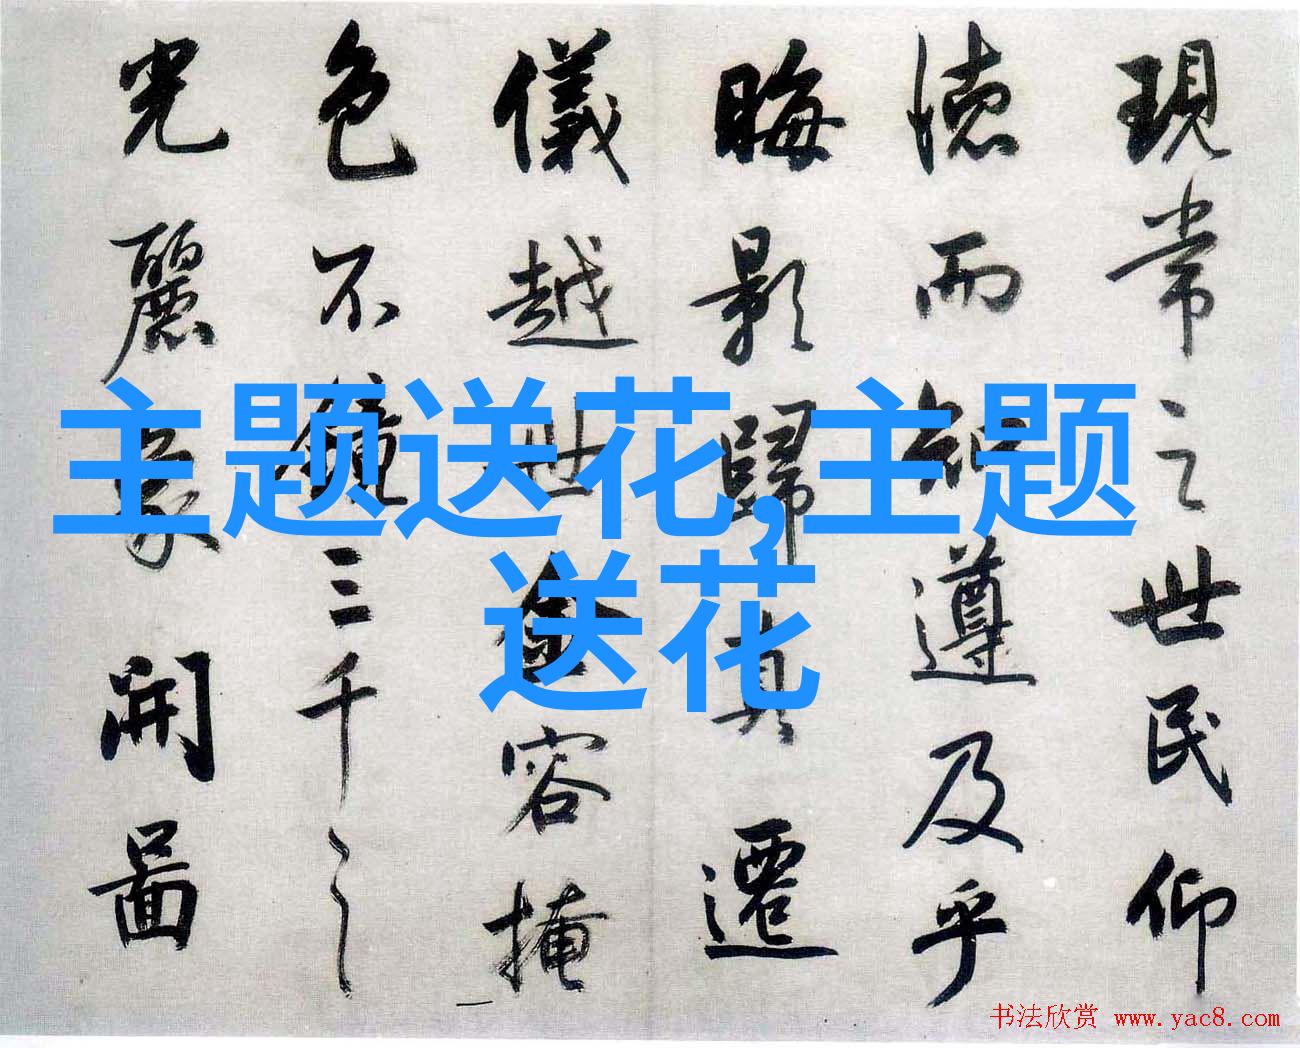 現常之世民仰
德而知遵及乎
晦影歸真遷
儀越世金容掩
色不鏡三千之
光麗象開圖
主题送花,主题
送花
书法欣赏 www.yac8.com